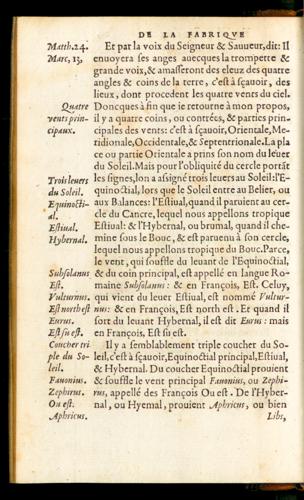 DE LA FABRIQVE
Matth.24.
Marc, 13,
Et par la voix du Seigneur & Sauueur, dit: Il
enuoyera ses anges auecques la trompette &
grande voix, & amasseront des eleuz des quatre
angles & coins de la terre, c'est à sçauoir, des
lieux, dont procedent les quatre vents du ciel.
Quatre
vents prin-
cipaux.
Doncques à fin que ie retourne à mon propos,
il y a quatre coins, ou contrées, & parties prin-
cipales des vents: c'est à sçauoir, Orientale, Me-
ridionale, Occidentale, & Septentrionale. La pla
ce ou partie Orientale a prins son nom du leuer
du Soleil. Mais pour l'obliquité du cercle portāt
Trois leuers
du Soleil.
Equinocti-
al.
Estiual.
Hybernal.
les signes, lon a assigné trois leuers au Soleil: l'E-
quinoctial, lors que le Soleil entre au Belier, ou
aux Balances: l'Estiual, quand il paruient au cer-
cle du Cancre, lequel nous appellons tropique
Estiual: & l'Hybernal, ou brumal, quand il che
mine sous le Bouc, & est paruenu à son cercle,
lequel nous appellons tropique du Bouc. Parce,
le vent, qui souffle du leuant de l'Equinoctial,
Subsolanus
Est.
Vulturnus.
Est north est
Eurus.
Est sú est.
& du coin principal, est appellé en langue Ro
maine Subsolanus: & en François, Est. Celuy,
qui vient du leuer Estiual, est nommé Vultur-
nus: & en François, Est north est. Et quand il
sort du leuant Hybernal, il est dit Eurus: mais
en François, Est sú est.
Coucher tri
ple du So-
leil.
Fauonius.
Zephirus.
Ou est.
Aphricus.
Il y a semblablement triple coucher du So-
leil, c'est à sçauoir, Equinoctial principal, Estiual,
& Hybernal. Du coucher Equinoctial prouient
& souffle le vent principal Fauonius, ou Zephi-
rus, appellé des François Ou est. De l'Hyber-
nal, ou Hyemal, prouient Aphricus, ou bien
Libs,